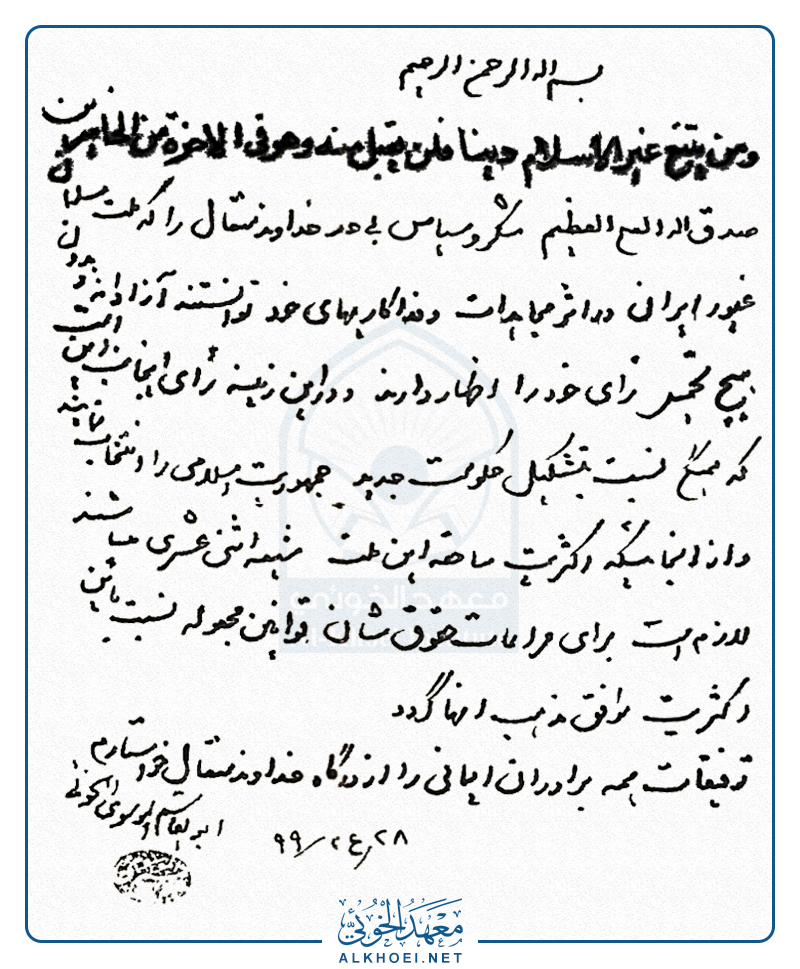 بسم الله الرحمن الرحیم
ومن یبتغ غیر الاسلام دینا فلن یقبل منه وهو فی الاخرة من الخاسرین
صدق الله العلی العظیم شکر و سپاس بی حد خداوند متعال را که ملت مسلمان
غیور ایرانی در اثر مجاهدات و فداکاریهای خود توانستند آزادانه و بدون
هیچ تحمیل رأی خود را اظهار دارند و در این زمینه رأی اینجانب این است
که همگی نسبت بتشکیل حکومت جدید جمهوریت اسلامی را انتخاب نمایند
و از آنجائیکه اکثریت ساحقه این ملت شیعه اثنی عشری میباشند
لازم است برای مراعات حقوق شان قوانین مجعوله نسبت باین
اکثریت موافق مذهب آنها گردد
توفیقات همه برادران ایمانی را از درگاه خداوند متعال خواستارم
ابوالقاسم الموسوی الخوئی
۲۸ ر ع۲ / ۹۹
معهد الخوئي
معهد الخوئي
ALKHOEI.NET